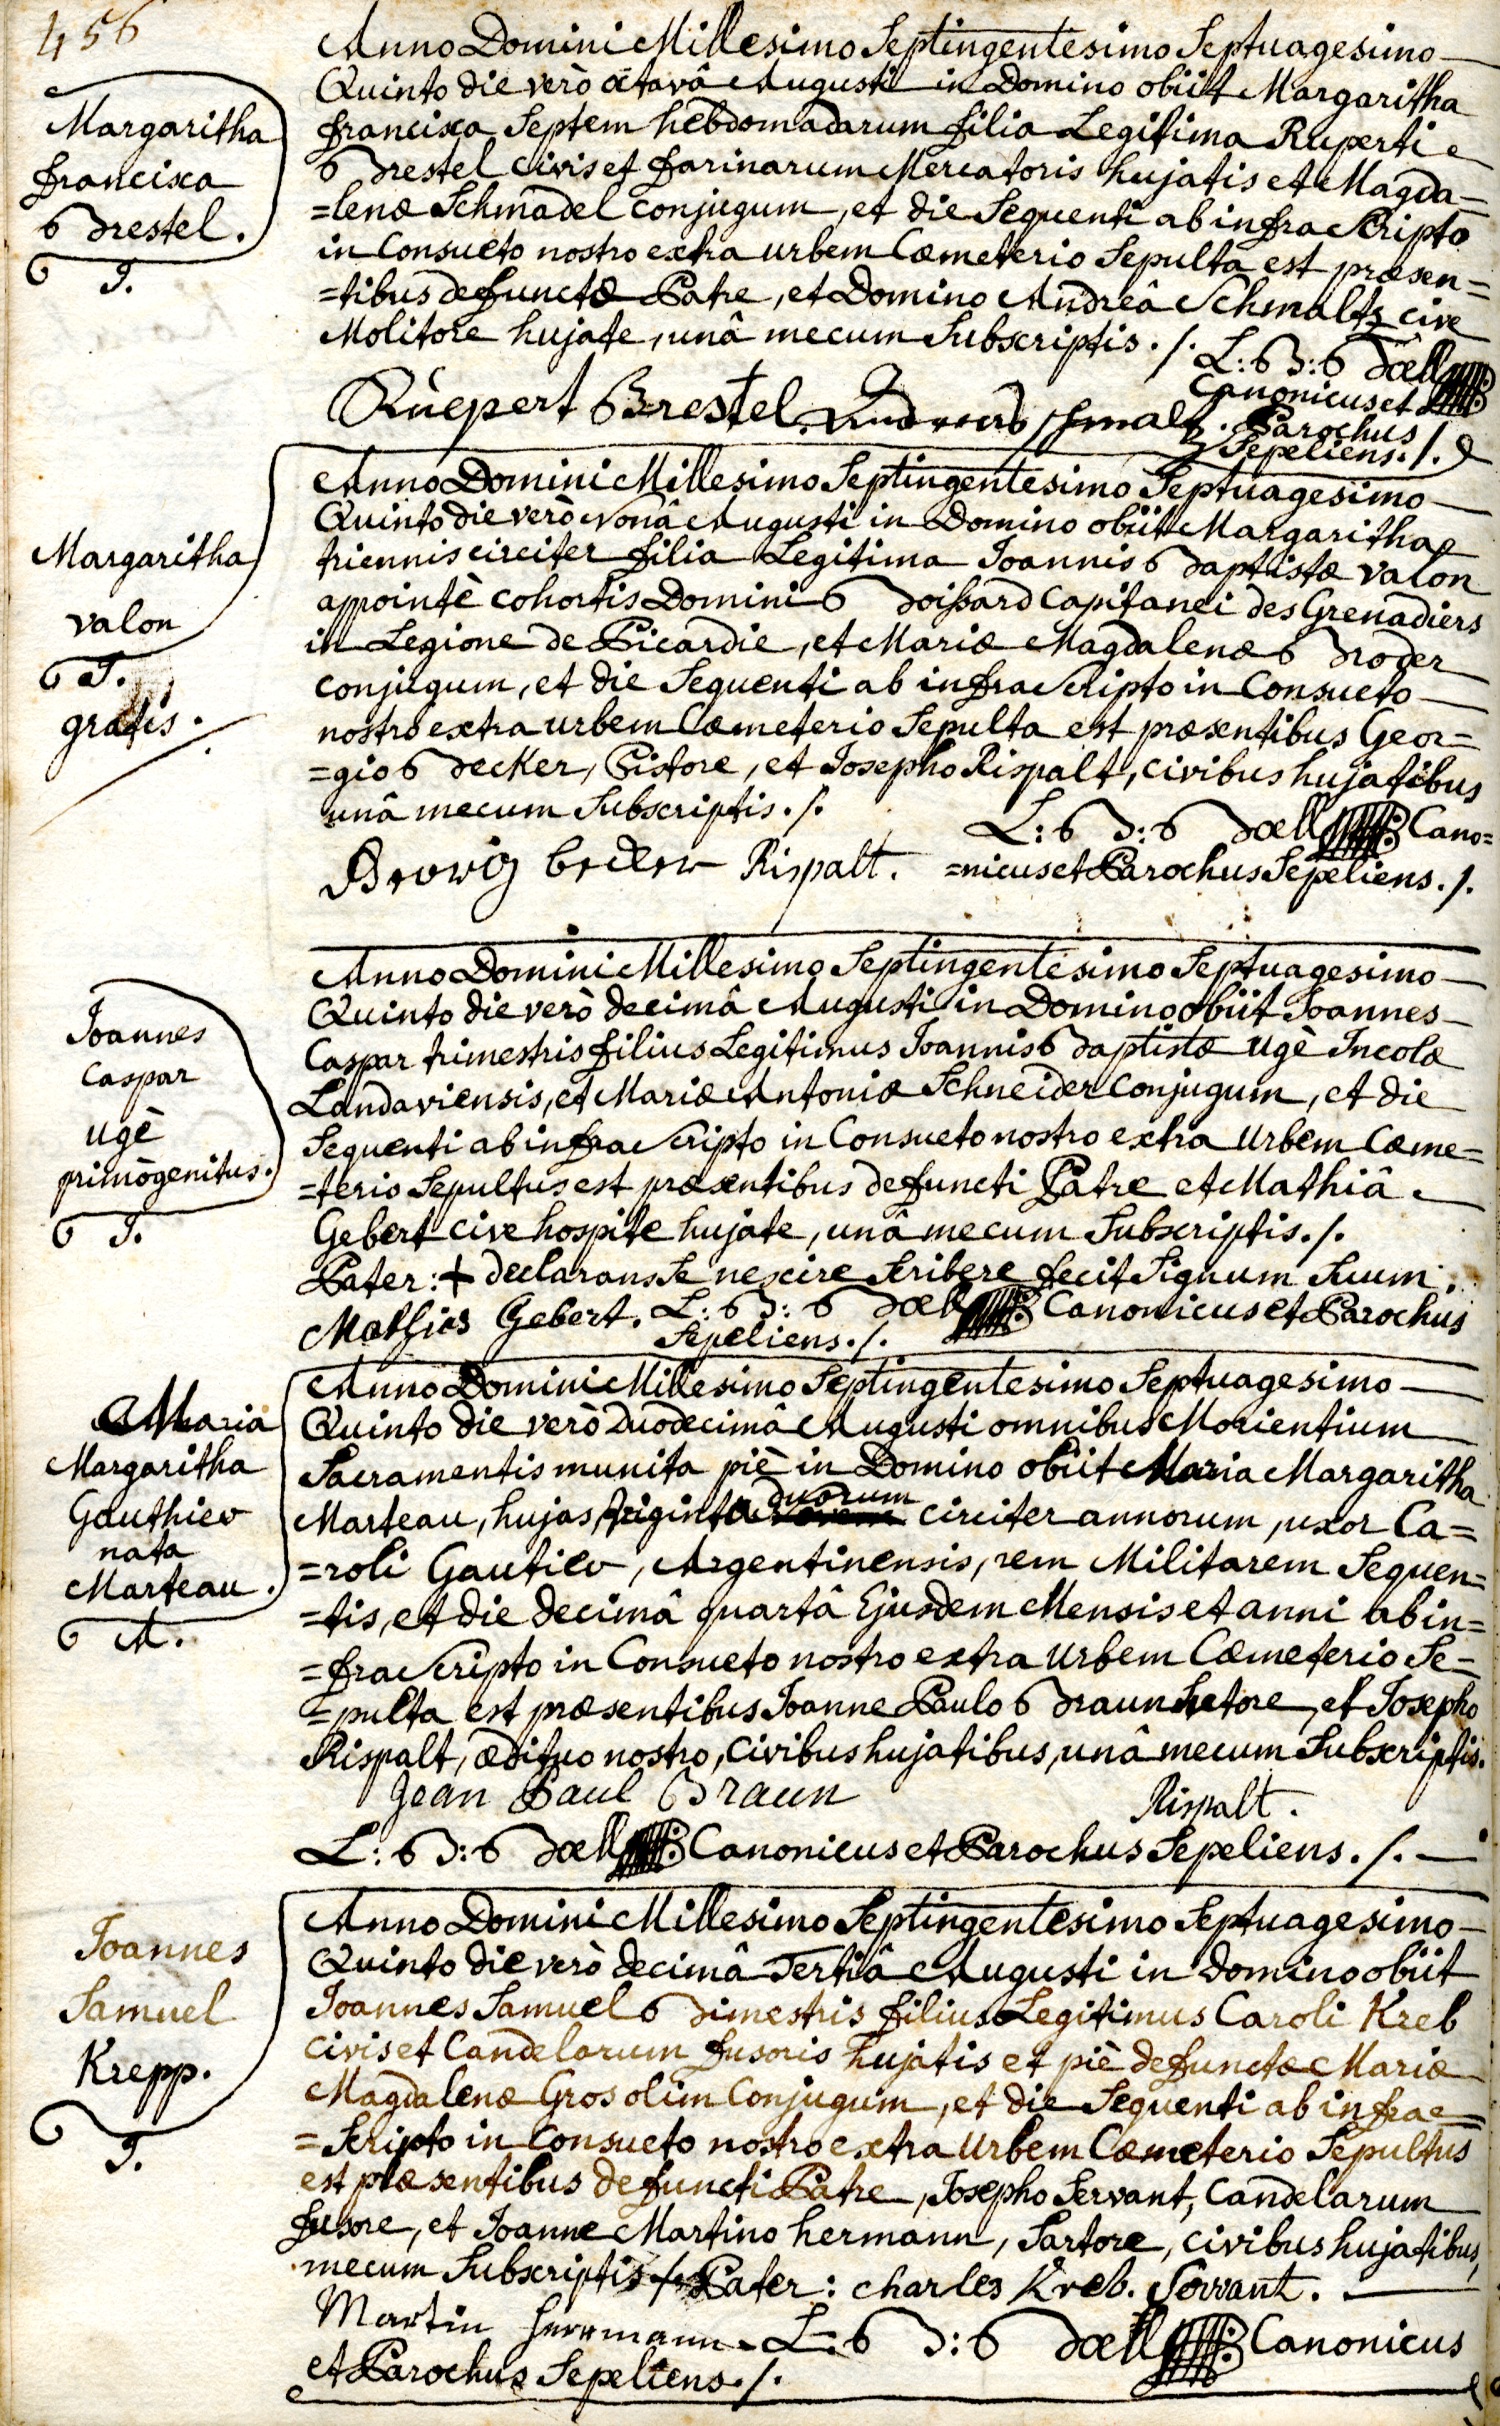 456
Margaritha
francisca
Brestel.
J.
Anno Domini Millesimo Septingentesimo Septuagesimo
Quinto die verò octavâ Augusti in Domino obiit Margaritha
francisca Septem hebdomadarum filia Legitima Ruperti
Brestel civis et farinarum Mercatoris hujatis et Magda=
=lenæ Schmadel conjugum, et die Sequenti ab infra Scripto
in Consueto nostro extra urbem Cœmeterio Sepulta est præsen=
=tibus defunctæ Patre, et Domino Andreâ Schmaltz cive
Molitore hujate, unâ mecum Subscriptis ./.
L: B: Bœll
Canonicus et
Parochus
Sepeliens ./.
Rùepert Brestel. Andreas schmaltz.
Margaritha
valon
J.
gratis.
Anno Domini Millesimo Septingentesimo Septuagesimo
Quinto die verò Nonâ Augusti in Domino obiit Margaritha
triennis circiter filia Legitima Joannis Baptistæ valon
appointè cohortis Domini Boissard Capitanei des Grenadiers
in Legione de Picardie, et Mariæ Magdalenæ Broder
conjugum, et die Sequenti ab infra Scripto in Consueto
nostro extra urbem Cœmeterio Sepulta est præsentibus Geor=
=gio Becker, Pistore, et Josepho Rispalt, civibus hujatibus
unâ mecum Subscriptis ./.
L: B: Bœll Cano=
=nicus et Parochus Sepeliens ./.
Georg becker Rispalt.
Joannes
Caspar
Ugè
primogenitus.
J.
Anno Domini Millesimo Septingentesimo Septuagesimo
Quinto die verò decimâ Augusti in Domino obiit Joannes
Caspar trimestris filius Legitimus Joannis Baptistæ Ugè Incolæ
Landaviensis, et Mariæ Antoniæ Schneider conjugum, et die
Sequenti ab infra Scripto in Consueto nostro extra Urbem Cœme=
=terio Sepultus est præsentibus defuncti Patre et Mathiâ
Gebert cive hospite hujate, unâ mecum Subscriptis ./.
Pater: + declarans Se nescire Scribere fecit Signum Suum.
Mathias Gebert. L: B: Bœll Canonicus et Parochus
Sepeliens ./.
Maria
Margaritha
Gauthier
nata
Marteau.
A.
Anno Domini Millesimo Septingentesimo Septuagesimo
Quinto die verò Duodecimâ Augusti omnibus Morientium
Sacramentis munita piè in Domino obiit Maria Margaritha
Marteau, hujas, triginta duorum circiter annorum, uxor Ca=
=roli Gautier, Argentinensis, rem Militarem Sequen=
=tis, et die decimâ quartâ Ejusdem Mensis et anni ab in=
=fra Scripto in Consueto nostro extra Urbem Cœmeterio Se=
=pulta est præsentibus Joanne Paulo Braun Sutore, et Josepho
Rispalt, ædituo nostro, civibus hujatibus, unâ mecum Subscriptis.
Jean Paul Braun Rispalt.
L: B: Bœll Canonicus et Parochus Sepeliens ./.
Joannes
Samuel
Krepp.
J.
Anno Domini Millesimo Septingentesimo Septuagesimo
Quinto die verò decimâ Tertiâ Augusti in Domino obiit
Joannes Samuel Bimestris filius Legitimus Caroli Kreb
civis et Candelarum fusoris hujatis et piè defunctæ Mariæ
Magdalenæ Gros olim Conjugum, et die Sequenti ab infra=
=Scripto in Consueto nostro extra Urbem Cœmeterio Sepultus
est præsentibus defuncti Patre, Josepho Servant, Candelarum
fusore, et Joanne Martino hermann, Sartore, civibus hujatibus,
mecum Subscriptis ./. Pater: charles Kreb. Servant.
Martin herrmann. L: B: Bœll Canonicus
et Parochus Sepeliens ./.